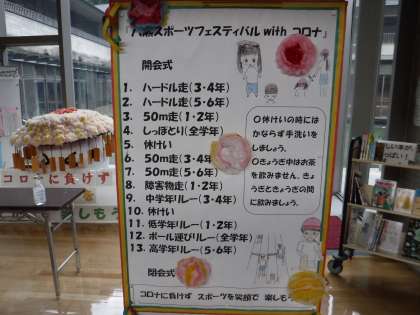 スポーツフェスティバル with コロナ」
開会式
1. ハードル走(3・4年)
2. ハードル走(5・6年)
3. 50m走(1・2年)
4. しっぽとり(全学年)
5. 休けい
6. 50m走(3・4年)
7. 50m走(5・6年)
8. 障害物走(1・2年)
9. 中学年リレー(3・4年)
10. 休けい
11. 低学年リレー(1・2年)
12. ボール運びリレー(全学年)
13. 高学年リレー(5・6年)
閉会式
〇休けいの時には
かならず手洗いを
しましょう。
〇きょうぎ中はお茶
を飲みません。きょ
うぎときょうぎの間
に飲みましょう。
コロナに負けず スポーツを笑顔で 楽しもう
コロナに負けず
楽しもう